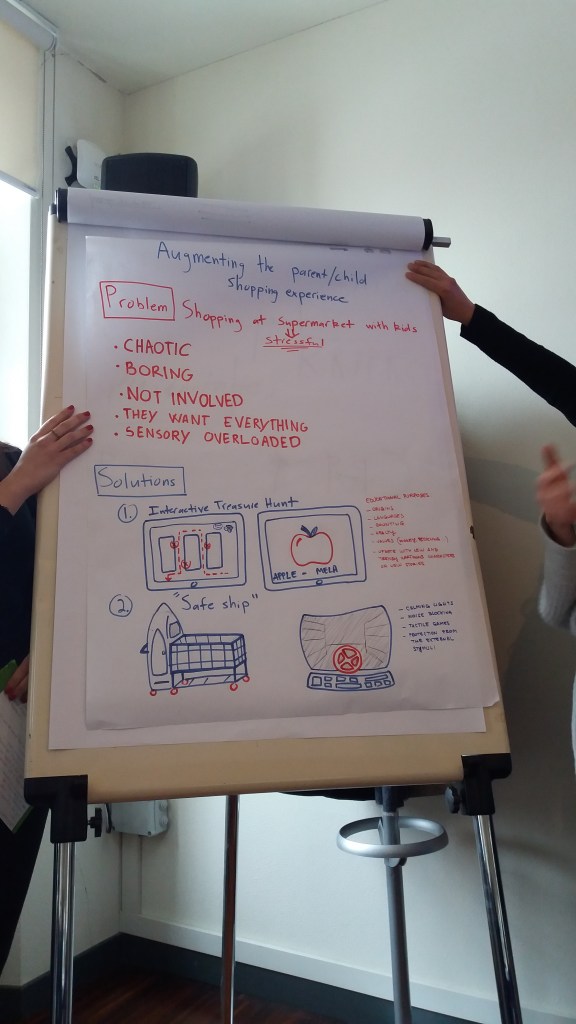 Augmenting the parent/child
shopping experience
Problem Shopping at supermarket with kids
stressful
• CHAOTIC
• BORING
• NOT INVOLVED
• THEY WANT EVERYTHING
• SENSORY OVERLOADED
Solutions
1. Interactive Treasure Hunt
EDUCATIONAL PURPOSES
- ORIGINS
- LANGUAGES
- COUNTING
- HEALTH
- UPDATE WITH NEW AND
TRENDY CARTOONS CHARACTERS
OR NEW STORIES
APPLE - MELA
2. "Safe ship"
- CALMING LIGHTS
- NOISE BLOCKING
- TACTILE GAMES
- PROTECTION FROM
THE EXTERNAL
STIMULI